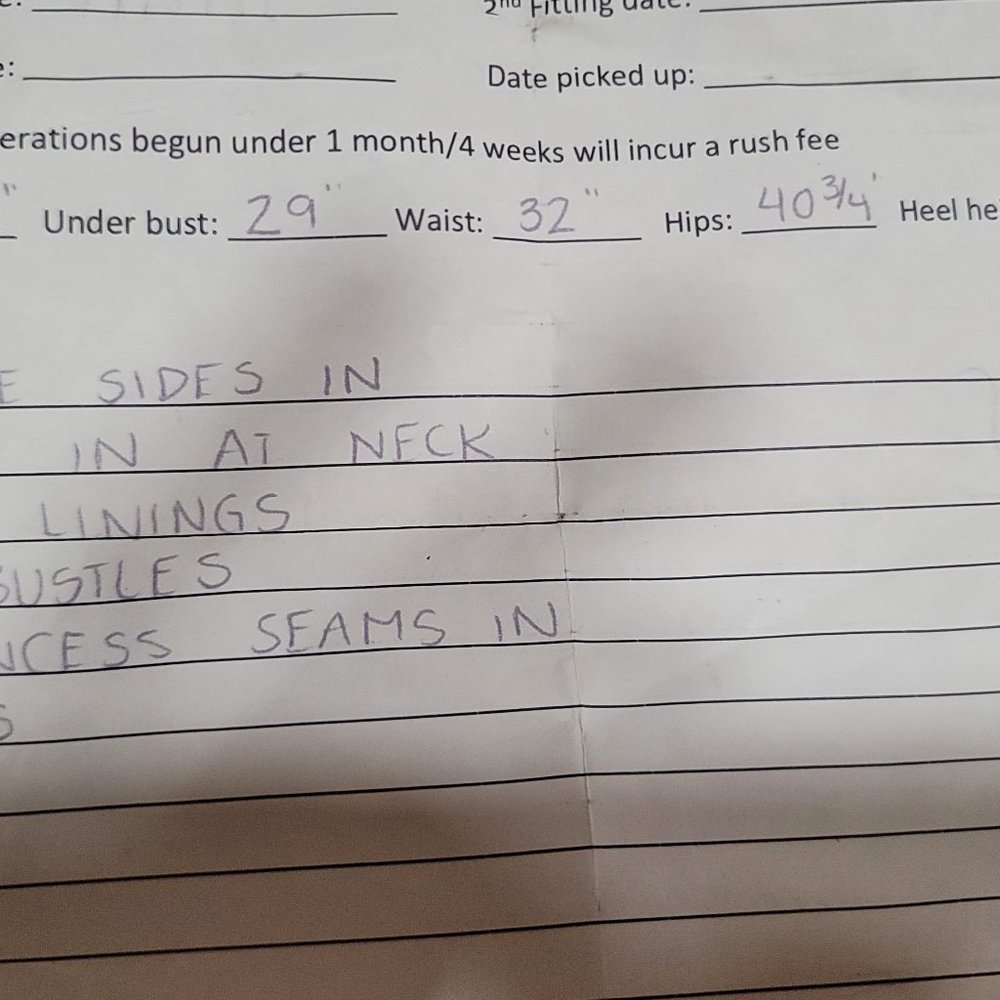 2nd Fitting date:
Date picked up:
erations begun under 1 month/4 weeks will incur a rush fee
" Under bust: 29" Waist: 32" Hips: 40 3/4' Heel hei
E SIDES IN
IN AT NECK
LININGS
BUSTLES
NCESS SEAMS IN
S